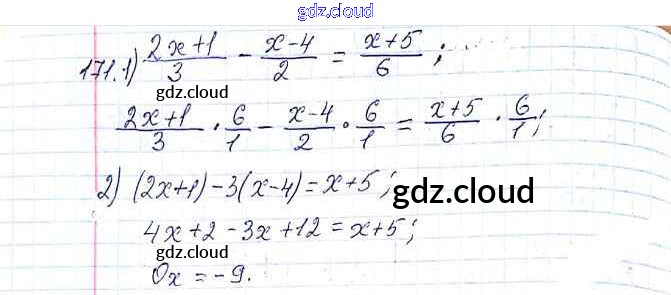 gdz.cloud
171. 1) (2x+1)/3 - (x-4)/2 = (x+5)/6 ;
gdz.cloud
(2x+1)/3 · 6/1 - (x-4)/2 · 6/1 = (x+5)/6 · 6/1 ;
2) (2x+1) - 3(x-4) = x+5 ;
gdz.cloud
4x + 2 - 3x + 12 = x+5 ;
gdz.cloud
0x = -9.